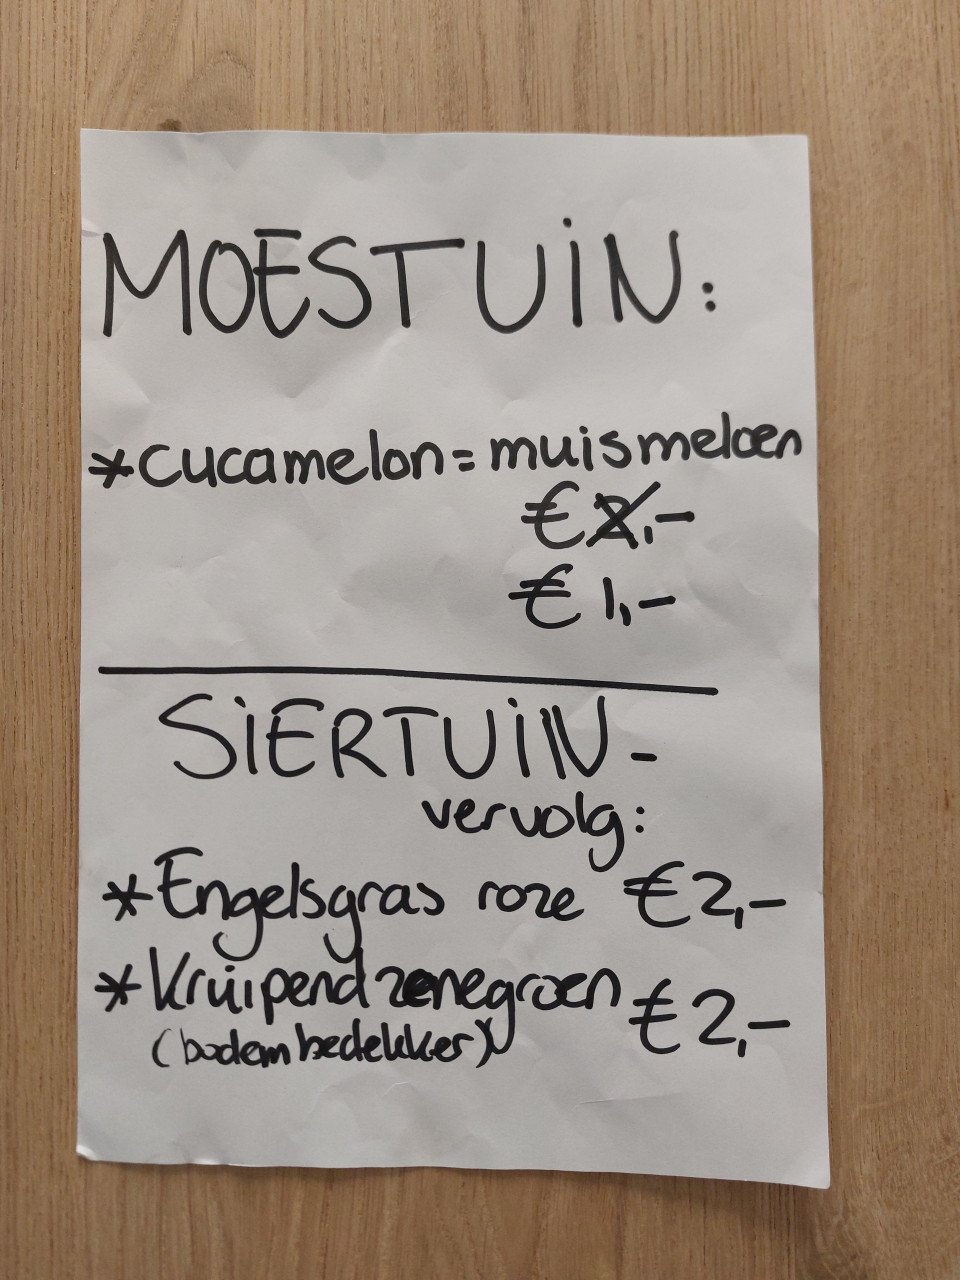 MOESTUiN:
*cucamelon = muismeloen
€ 2,-
€ 1,-
SiERTUiN -
vervolg:
*Engelsgras roze €2,-
*Kruipend zenegroen €2,-
(bodembedekker)